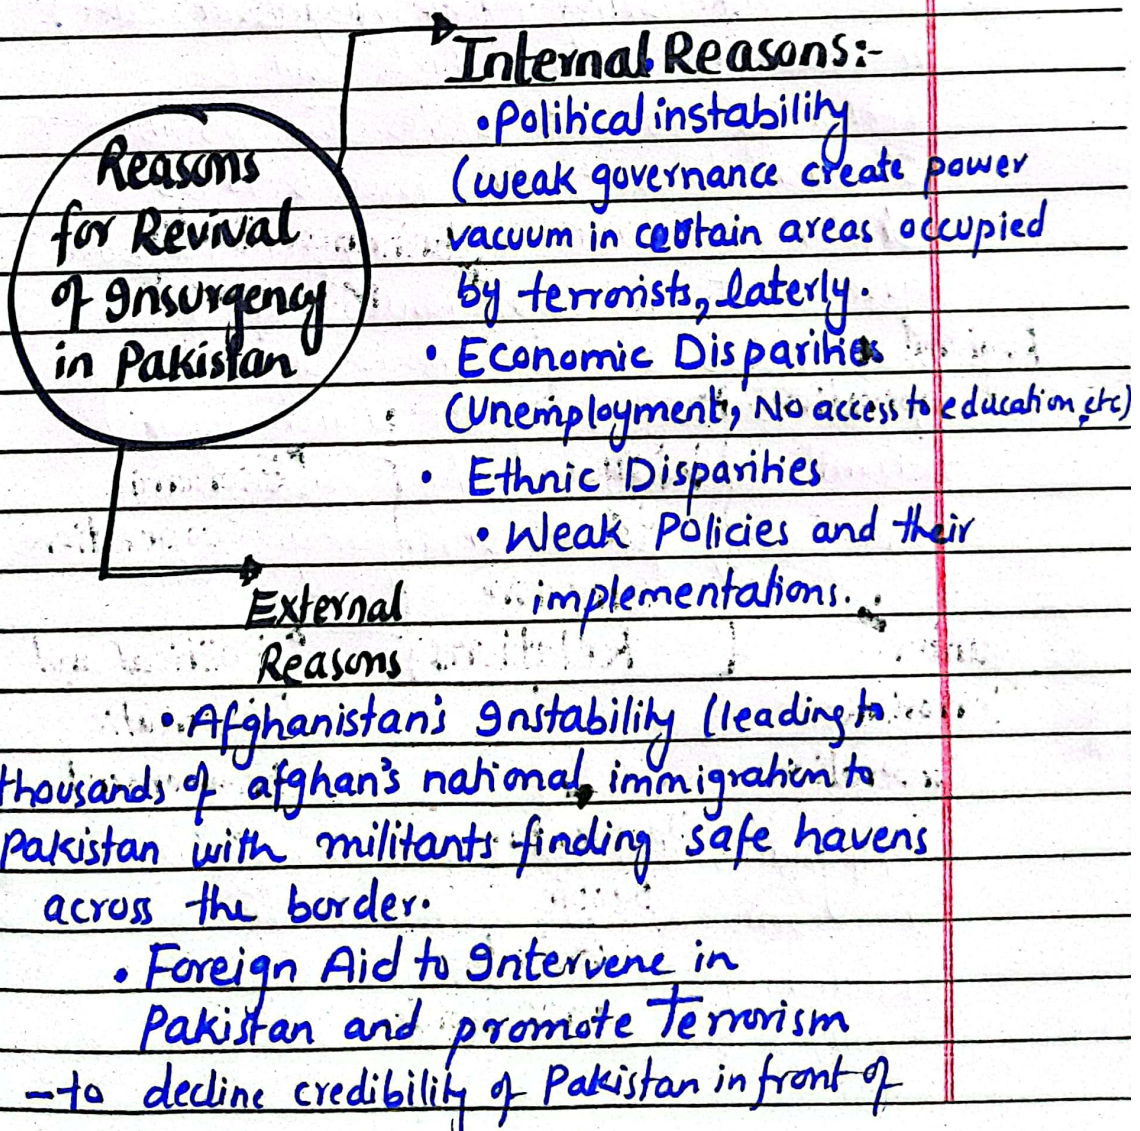 Internal Reasons:-
• Political instability
(weak governance create power
vacuum in certain areas occupied
by terrorists, laterly.
• Economic Disparities
(Unemployment, No access to education, etc)
• Ethnic Disparities
• Weak Policies and their
implementations.
Reasons
for Revival
of Insurgency
in Pakistan
External
Reasons
• Afghanistan's Instability (leading to
thousands of afghan's national, immigration to
Pakistan with militants finding safe havens
across the border.
• Foreign Aid to Intervene in
Pakistan and promote Terrorism
- to decline credibility of Pakistan in front of